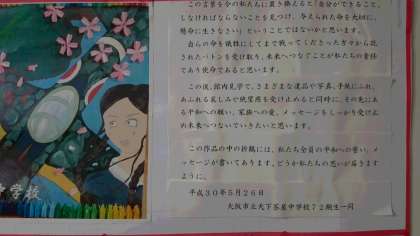 この言葉を今の私たちに置き換えると「自分ができること、
しなければならないことを見つけ、与えられた命を大切に、
懸命に生きなさい」ということではないかと思います。
自らの命を犠牲にしてまで戦ってくださった方々から託
されたバトンを受け取り、未来へつなぐことが私たちの責任
であり使命であると思います。
この後、館内見学で、さまざまな遺品や写真、手紙にふれ、
あふれる哀しみや絶望感を受け止めると同時に、その先にあ
る平和への願い、家族への愛、メッセージをしっかり受け止
め未来へつないでいきたいと思います。
この作品の中の折鶴には、私たち全員の平和への誓い、メ
ッセージが書いてあります。どうか私たちの思いが届きます
ように。
平成30年5月26日
大阪市立大下茶屋中学校72期生一同
中学校